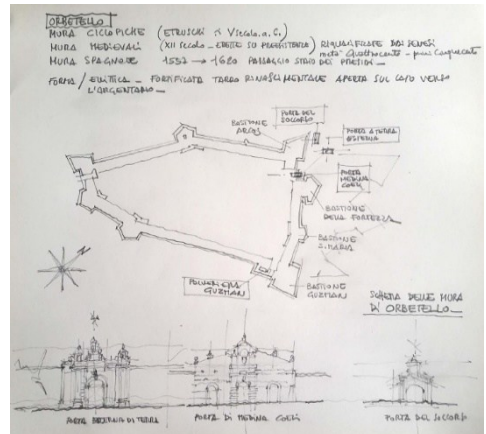 ORBETELLO
MURA CICLOPICHE (ETRUSCHI V secolo a.C.)
MURA MEDIEVALI (XII secolo - ERETTE SU PREESISTENZA) RIQUALIFICATE DAI SENESI
metà Quattrocento - primi Cinquecento
MURA SPAGNOLE 1557 → 1620 PASSAGGIO STATO DEI PRESIDI
FORMA / ELLITTICA - FORTIFICATA TARDO RINASCIMENTALE APERTA SUL LATO VERSO
L'ARGENTARIO
PORTA DEL
SOCCORSO
BASTIONE
PORTA A TERRA
ESTERNA
PORTA
MEDINA
COELI
BASTIONE
DELLA FORTEZZA
BASTIONE
S. MARIA
BASTIONE
GUZMAN
POLVERIERA
GUZMAN
N
SCHEMA DELLE MURA
DI ORBETELLO
PORTA ESTERNA DI TERRA
PORTA DI MEDINA COELI
PORTA DEL SOCCORSO